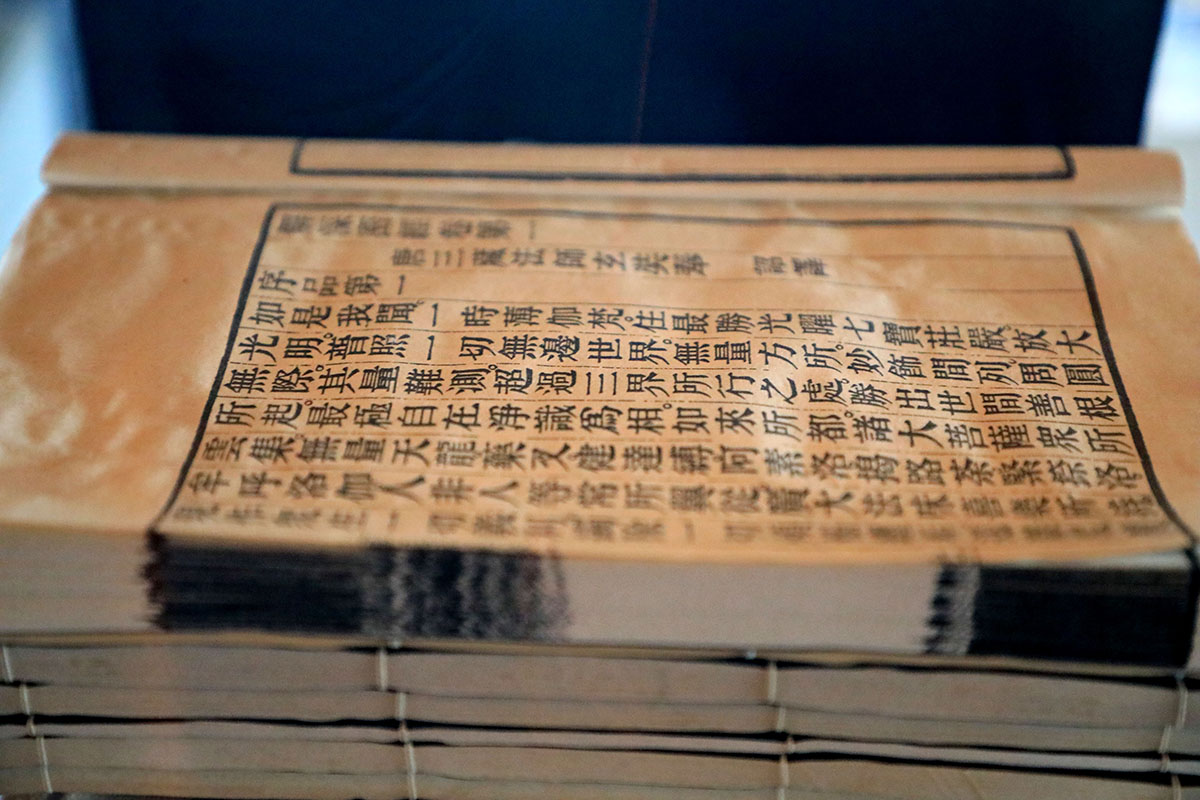 唐三藏法師玄奘奉　詔譯
序品第一
如是我聞。一時薄伽梵。住最勝光曜七寶莊嚴放大
光明。普照一切無邊世界。無量方所。妙飾間列。周圓
無際。其量難測。超過三界所行之處。勝出世間善根
所起。最極自在淨識爲相。如來所都。諸大菩薩衆所
雲集。無量天龍藥叉健達縛阿素洛揭路荼緊捺洛
牟呼洛伽人非人等常所翼從廣大法味喜樂所持